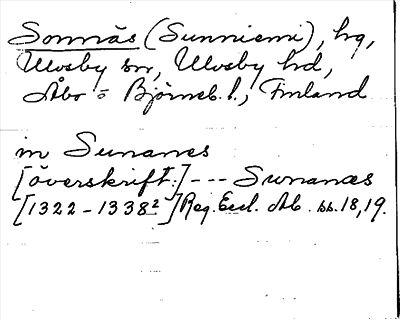 Sonnäs (Sunniemi), hg,
Ulvsby sn, Ulvsby hd,
Åbo o Björneb. l., Finland
in Sunanes
[överskrift.] --- Sunanæs
[1322-1338²] Reg. Eccl. Ab. ss. 18, 19.